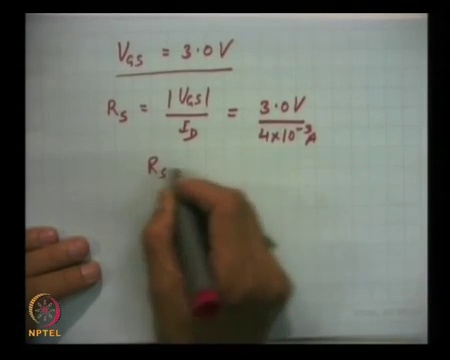 V_GS = 3.0 V
R_S = |V_GS| / I_D = 3.0 V / 4×10⁻³ A
R_S
NPTEL